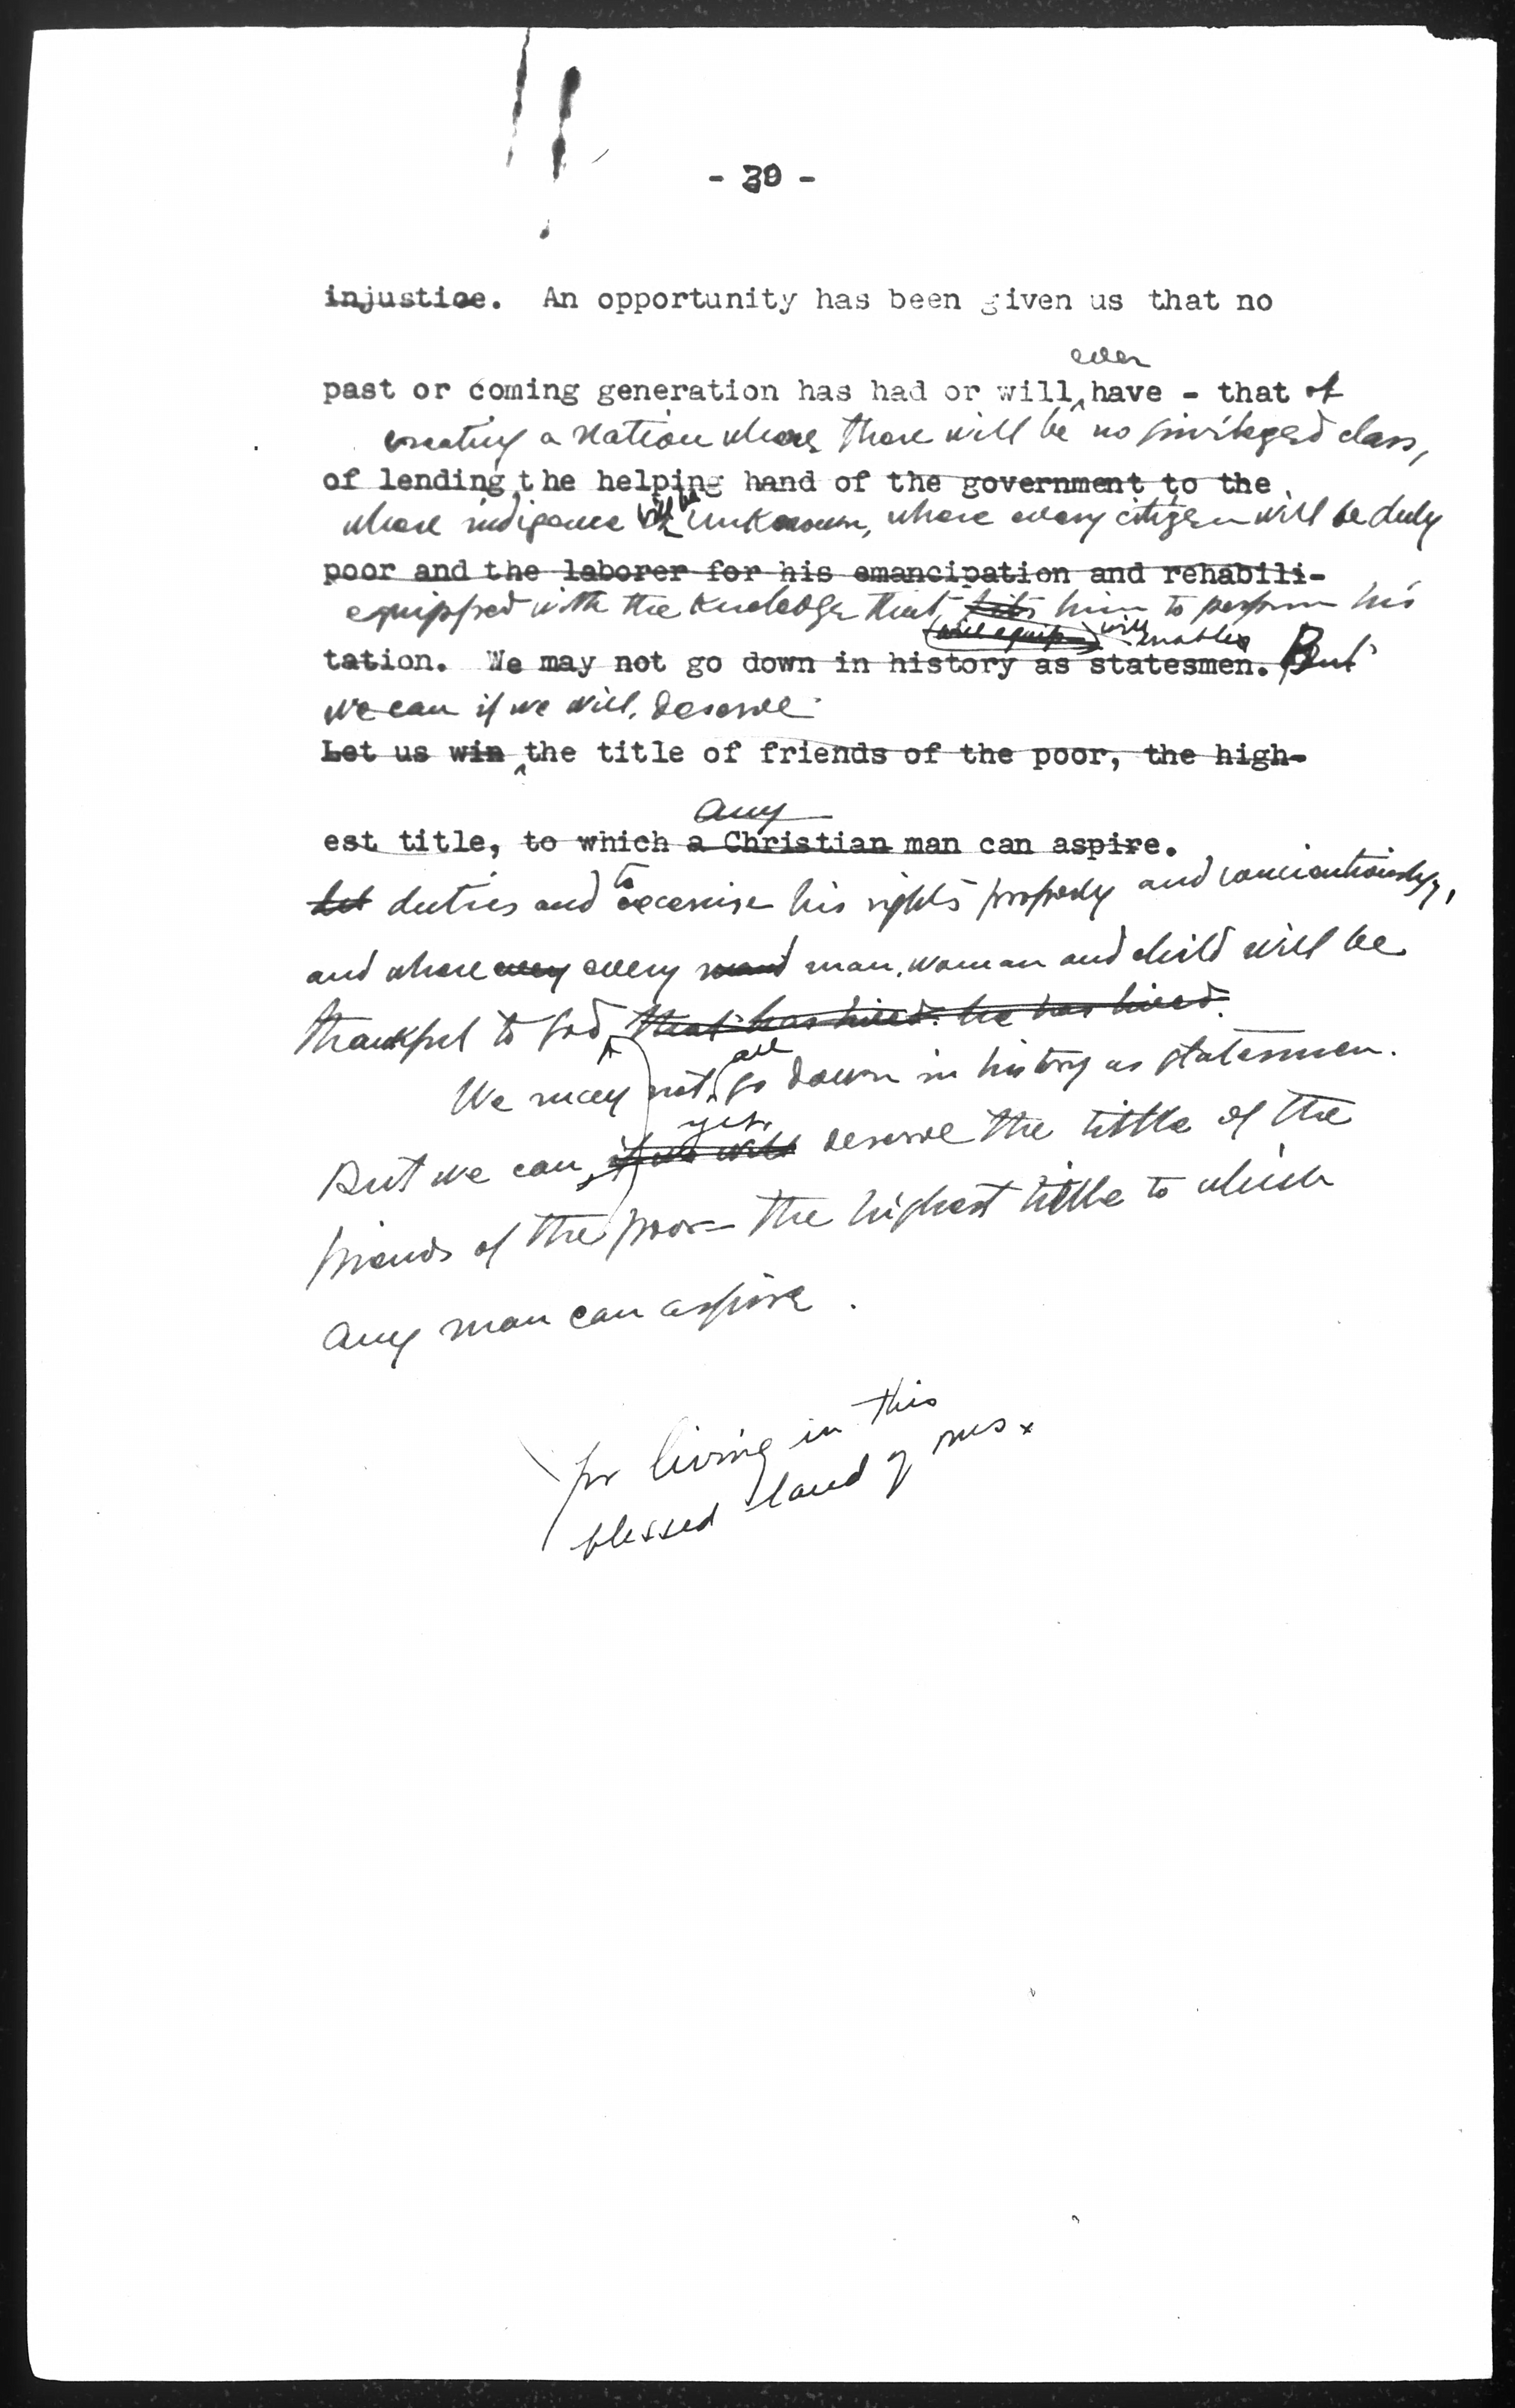 - 39 -
injustice. An opportunity has been given us that no
ever
past or coming generation has had or will have - that of
creating a nation where there will be no privileged class,
of lending the helping hand of the government to the
where indigence will be unknown, where every citizen will be duly
poor and the laborer for his emancipation and rehabili-
equipped with the knowledge that fits him to perform his
will equip will enable
tation. We may not go down in history as statesmen. But
we can if we will, deserve
Let us win the title of friends of the poor, the high-
any
est title, to which a Christian man can aspire.
to
duties and exercise his rights properly and
and where every man, woman and child will be
thankful to God that has lived. he has lived.
all
We may not go down in history as statesmen.
yet
But we can, if we will deserve the tittle of the
friends of the poor - the highest tittle to which
any man can aspire.
for living in this
blessed land of ours